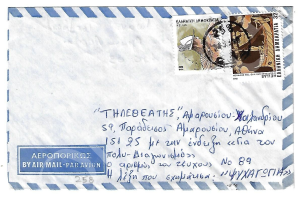 ΕΛΛΗΝΙΚΗ ΔΗΜΟΚΡΑΤΙΑ
"ΤΗΛΕΘΕΑΤΗΣ", Αμαρουσίου-Χαλανδρίου
59, Παράδεισος Αμαρουσίου, Αθήνα
151 25 με την ένδειξη για τον
Πολυ-Διαγωνισμό
ο αριθμός του τεύχους Νο 89
Η λέξη που σχημάτισα: "ΨΥΧΑΓΩΓΙΑ"
ΑΕΡΟΠΟΡΙΚΩΣ
BY AIR MAIL-PAR AVION